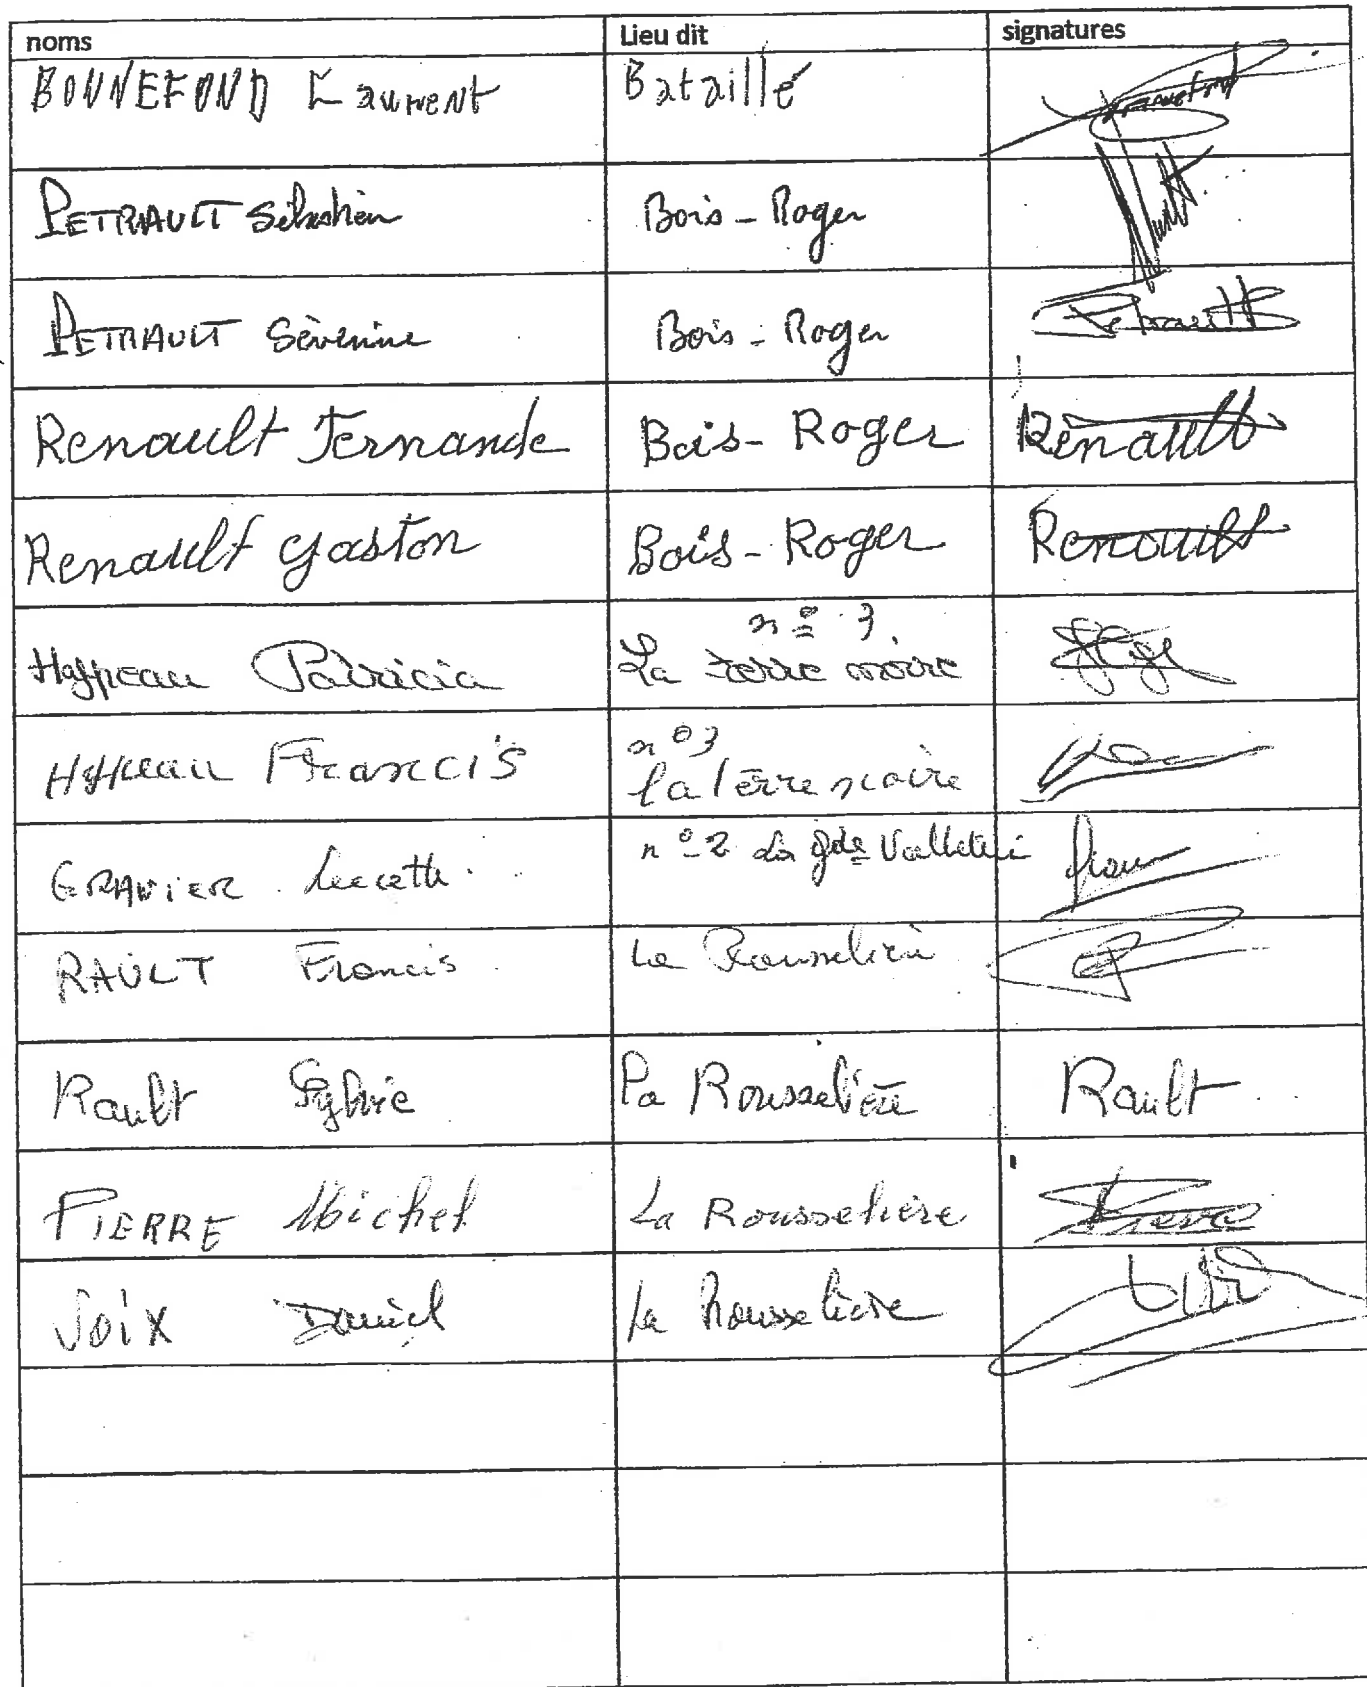 noms Lieu dit signatures
BONNEFOND Laurent Bataillé
PETRAULT Sébastien Bois - Roger
PETRAULT Séverine Bois - Roger Petrault
Renault Fernande Bois - Roger Renault
Renault Gaston Bois - Roger Renault
n° 3
Patricia La terre noire
n° 3
Francis la terre noire
GRAVIER Lucette n° 2 La gde
RAULT Francis La Rousselière
Rault Sylvie La Rousselière Rault
PIERRE Michel La Rousselière Pierre
Daniel La Rousselière